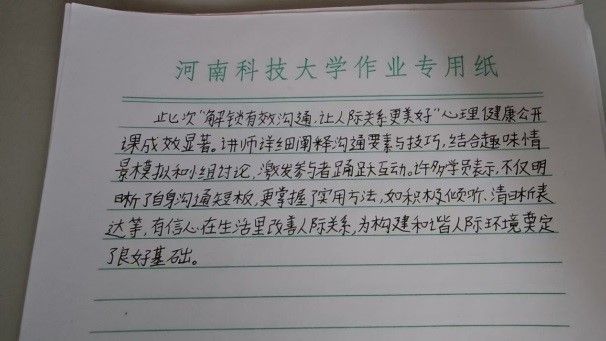 河南科技大学作业专用纸
此次"解锁有效沟通,让人际关系更美好"心理健康公开
课成效显著。讲师详细阐释沟通要素与技巧,结合趣味情
景模拟和小组讨论,激发参与者踊跃互动。许多学员表示,不仅明
晰了自身沟通短板,更掌握了实用方法,如积极倾听、清晰表
达等,有信心在生活里改善人际关系,为构建和谐人际环境奠定
了良好基础。